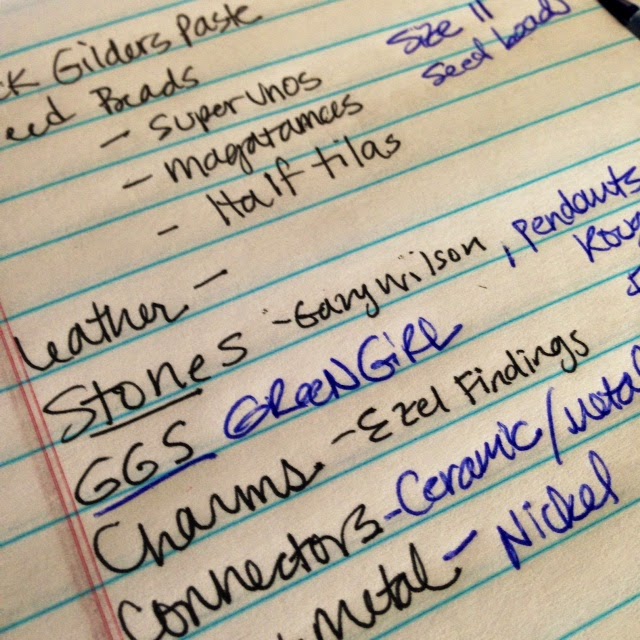 K Gilders Paste
eed Beads Size 11
- Super Unos seed bead
- Magatamees
- Half tilas
Leather -
Stones - Gary Wilson, Pendants
GGS GREENGIRL Rou
Charms - Ezel Findings
Connectors - Ceramic/Metal
Metal - Nickel